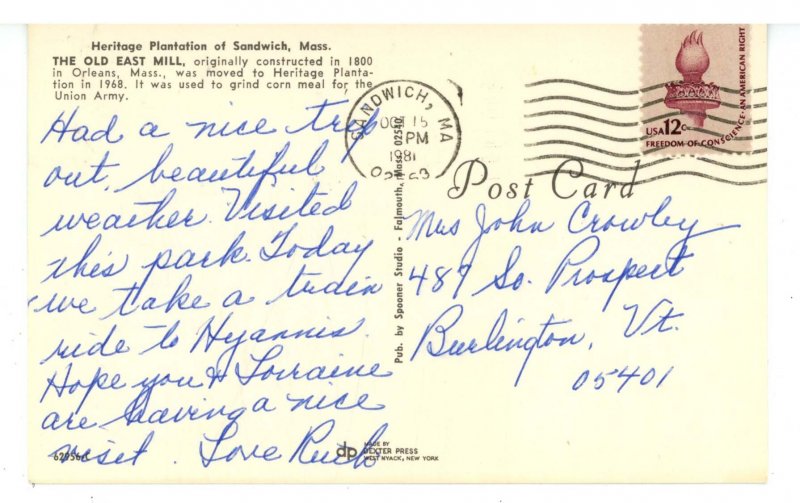 Heritage Plantation of Sandwich, Mass.
THE OLD EAST MILL, originally constructed in 1800
in Orleans, Mass., was moved to Heritage Planta-
tion in 1968. It was used to grind corn meal for the
Union Army.
Had a nice trip
out, beautiful
weather. Visited
this park. Today
we take a train
ride to Hyannis.
Hope you & Lorraine
are having a nice
visit. Love Ruth
SANDWICH, MA
OCT 15
PM
1981
USA 12c
FREEDOM OF CONSCIENCE-AN AMERICAN RIGHT
Post Card
Mrs John Crowley
487 So. Prospect
Burlington, Vt.
05401
Pub. by Spooner Studio - Falmouth, Mass. 02540
dp
MADE BY
DEXTER PRESS
WEST NYACK, NEW YORK